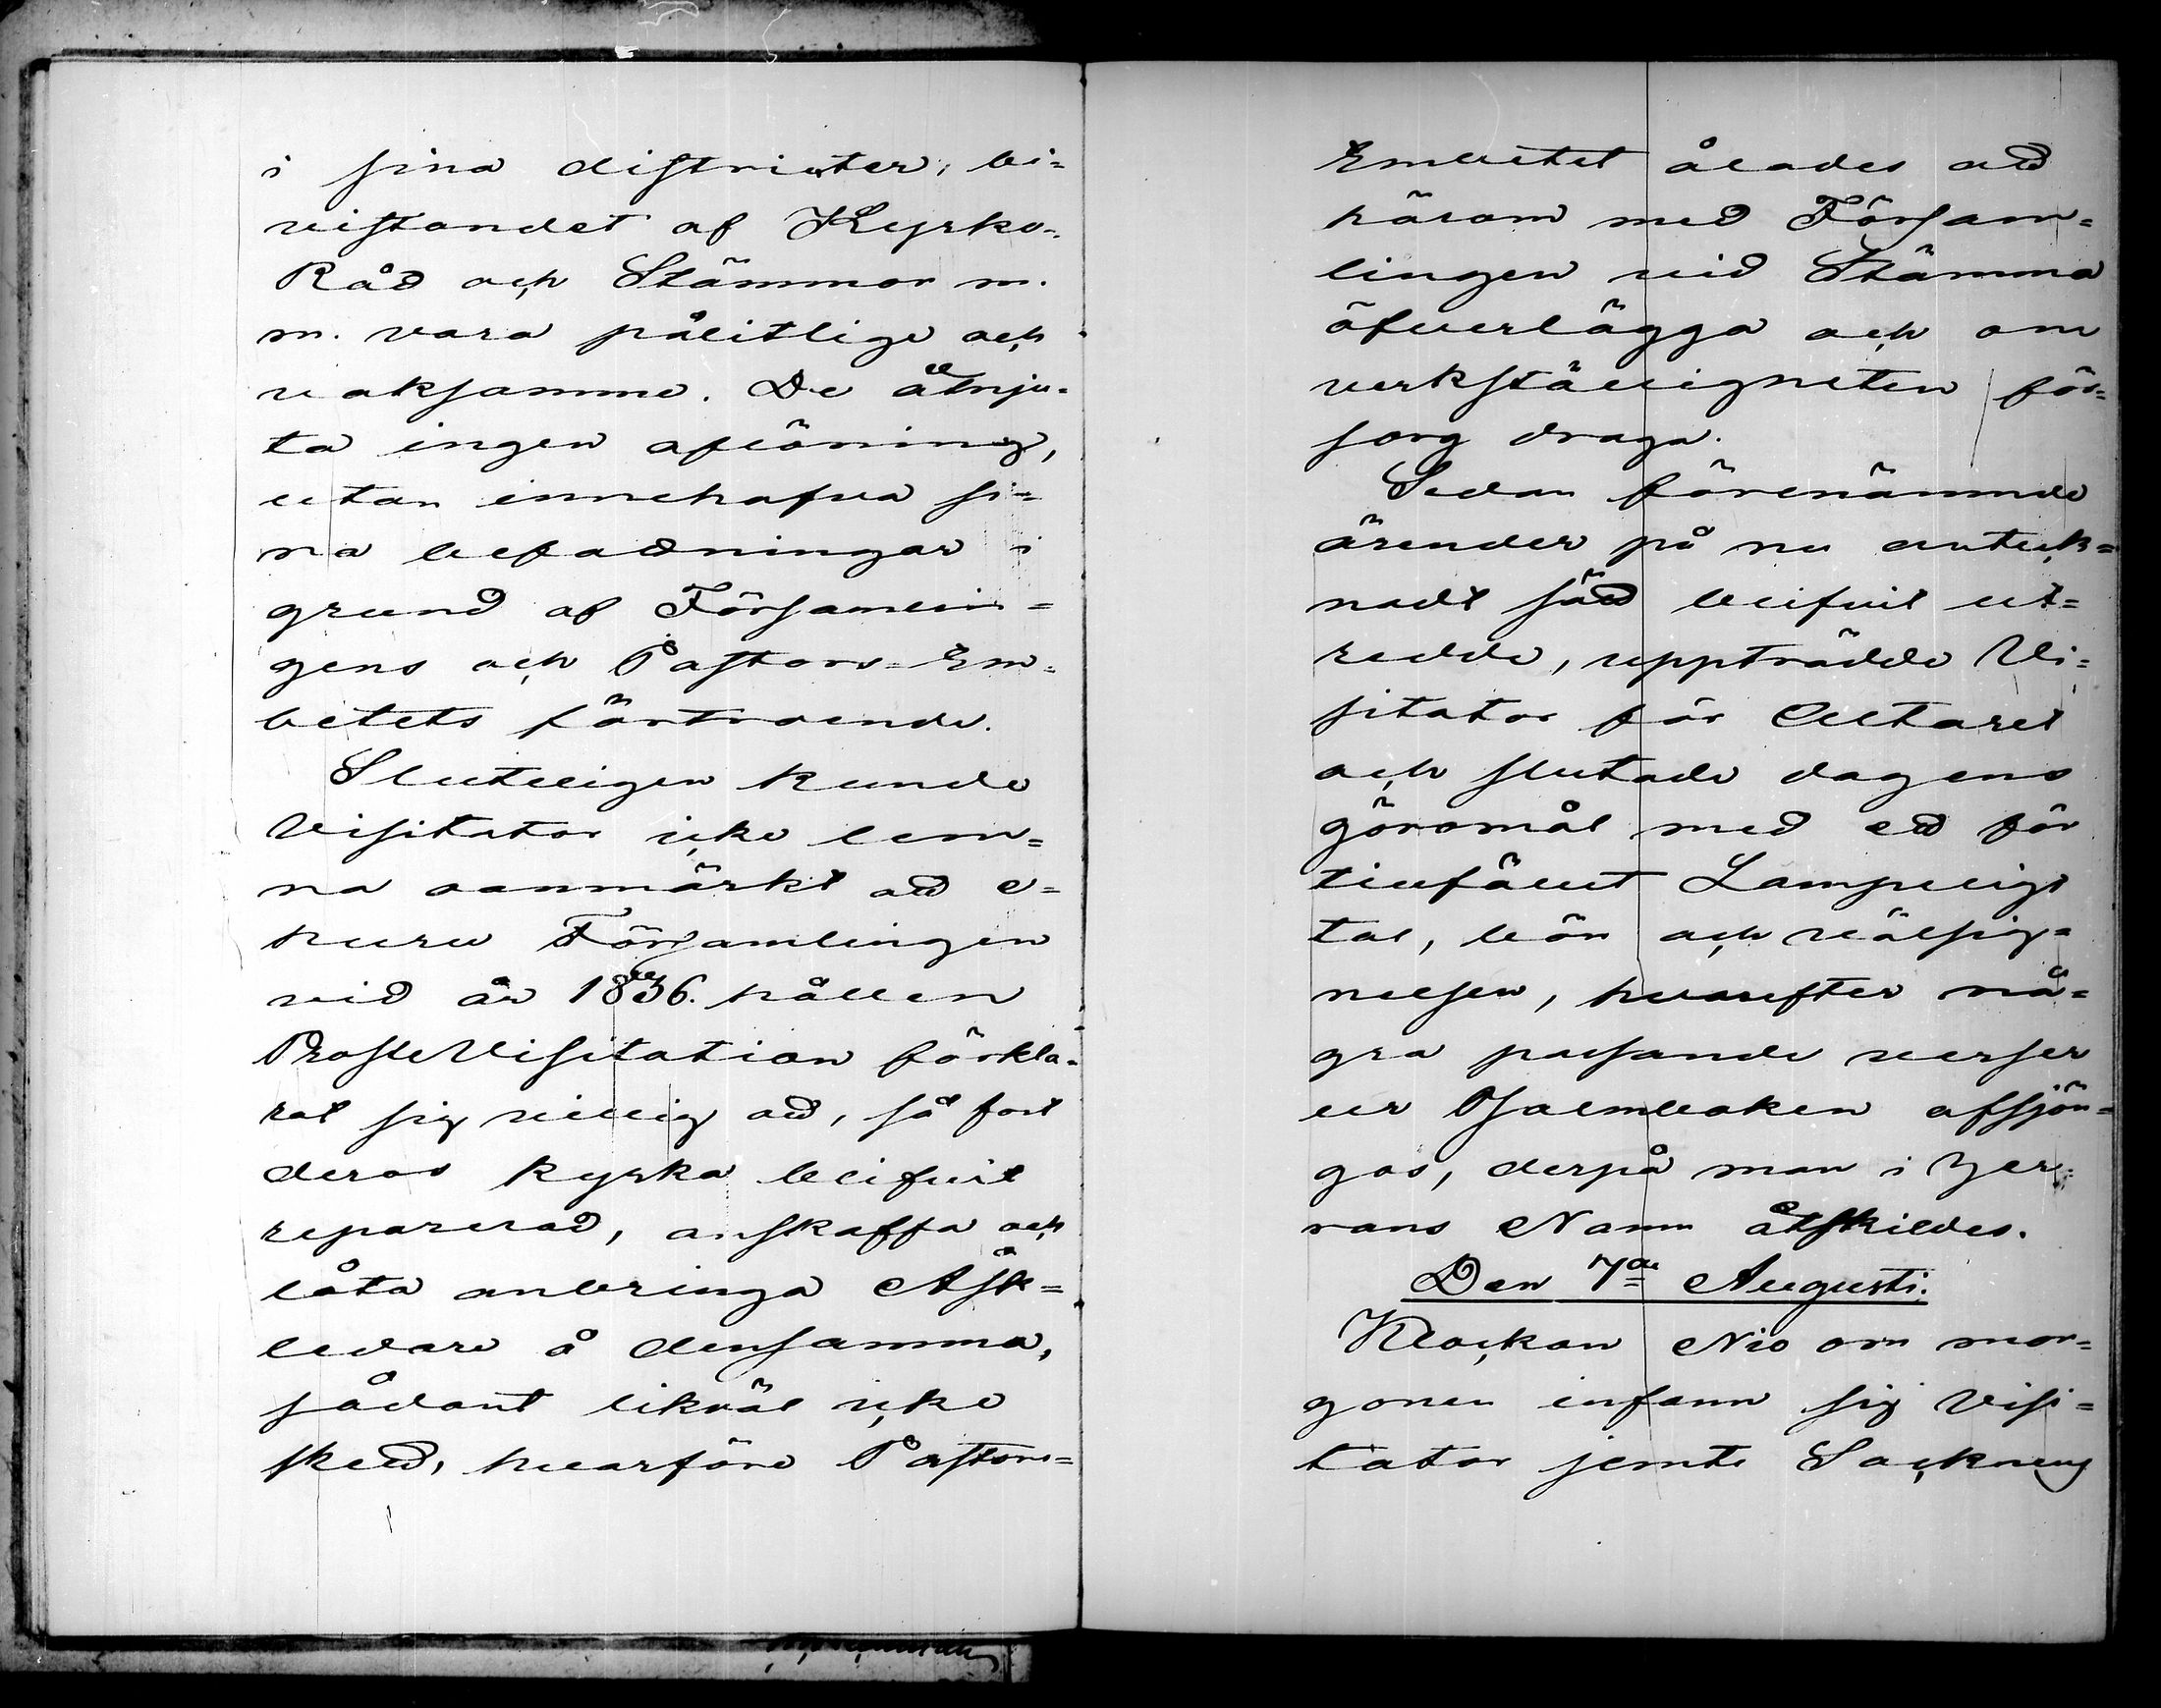 i sina districter, bi=
vistandet af Kyrko=
Råd och Stämmor m.
m. vara pålitlige och
vaksamme. De åtnju=
ta ingen aflöning,
utan innehafva si=
na befattningar i
grund af Församlin=
gens och Pastors=Em=
betets förtroende.
Slutligen kunde
Visitator icke lem=
na oanmärkt att e=
huru Församlingen
vid år 1836. hållen
ProsteVisitation förkla=
rat sig villig att, så fort
deras kyrka blifvit
reparerad, anskaffa och
låta anbringa Åsk=
ledare å densamma,
sådant likväl icke
skett, hvarföre Pastors=
Embetet ålades att
härom med Försam=
lingen vid Stämma
öfverlägga och om
verkställigheten för=
sorg draga.
Sedan förenämnde
ärender på nu anteck=
nadt sätt blifvit ut=
redde, uppträdde Vi=
sitator för Altaret
och slutade dagens
göromål med ett för
tillfället Lämpeligt
tal, bön och välsig=
nelsen, hvarefter nå=
gra passande verser
ur Psalmboken afsjön=
gos, derpå man i Her=
rans Namn åtskildes.
Den 7de Augusti.
Klockan Nio om mor=
gonen infann sig Visi=
tator jemte Sockneng